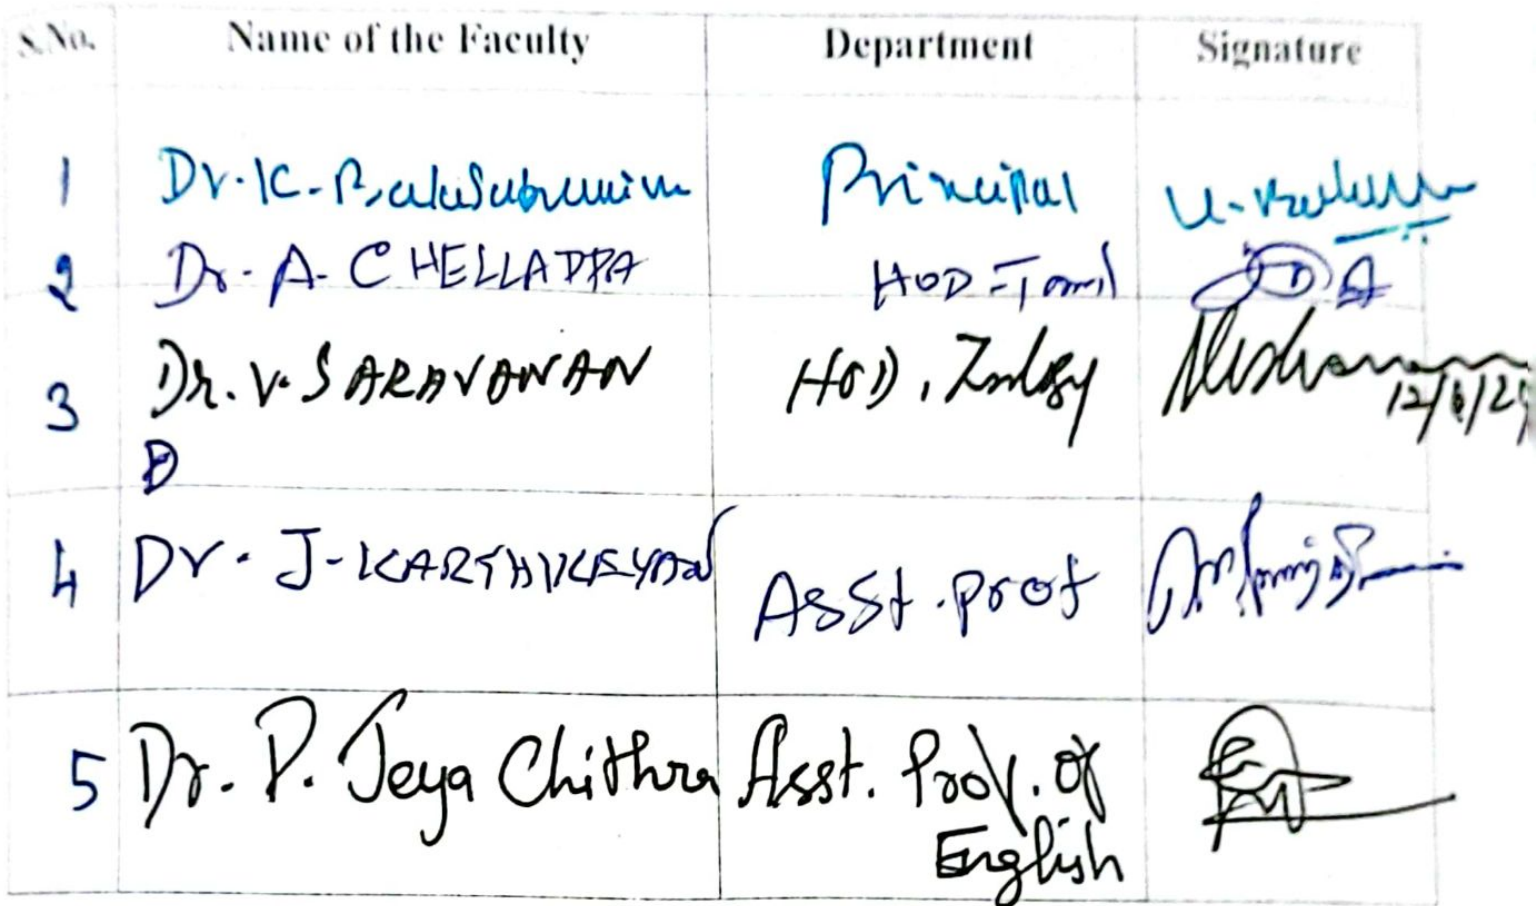 S.No. Name of the Faculty Department Signature
1 Dr. K. Balasubramanian Principal
2 Dr. A. CHELLAPPA HOD - Tamil
3 Dr. V. SARAVANAN HOD, Zoology
12/6/25
D
4 Dr. J. KARTHIKEYAN Asst. prof
5 Dr. P. Jeya Chithra Asst. Prof. of
English